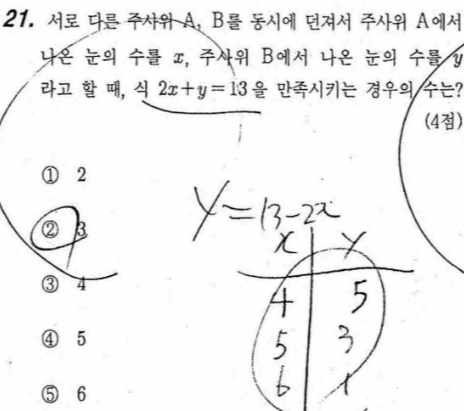 21. 서로 다른 주사위 A, B를 동시에 던져서 주사위 A에서
나온 눈의 수를 x, 주사위 B에서 나온 눈의 수를 y
라고 할 때, 식 2x+y=13을 만족시키는 경우의 수는?
(4점)
① 2
② 3
③ 4
④ 5
⑤ 6
y=13-2x
x y
4 5
5 3
6 1